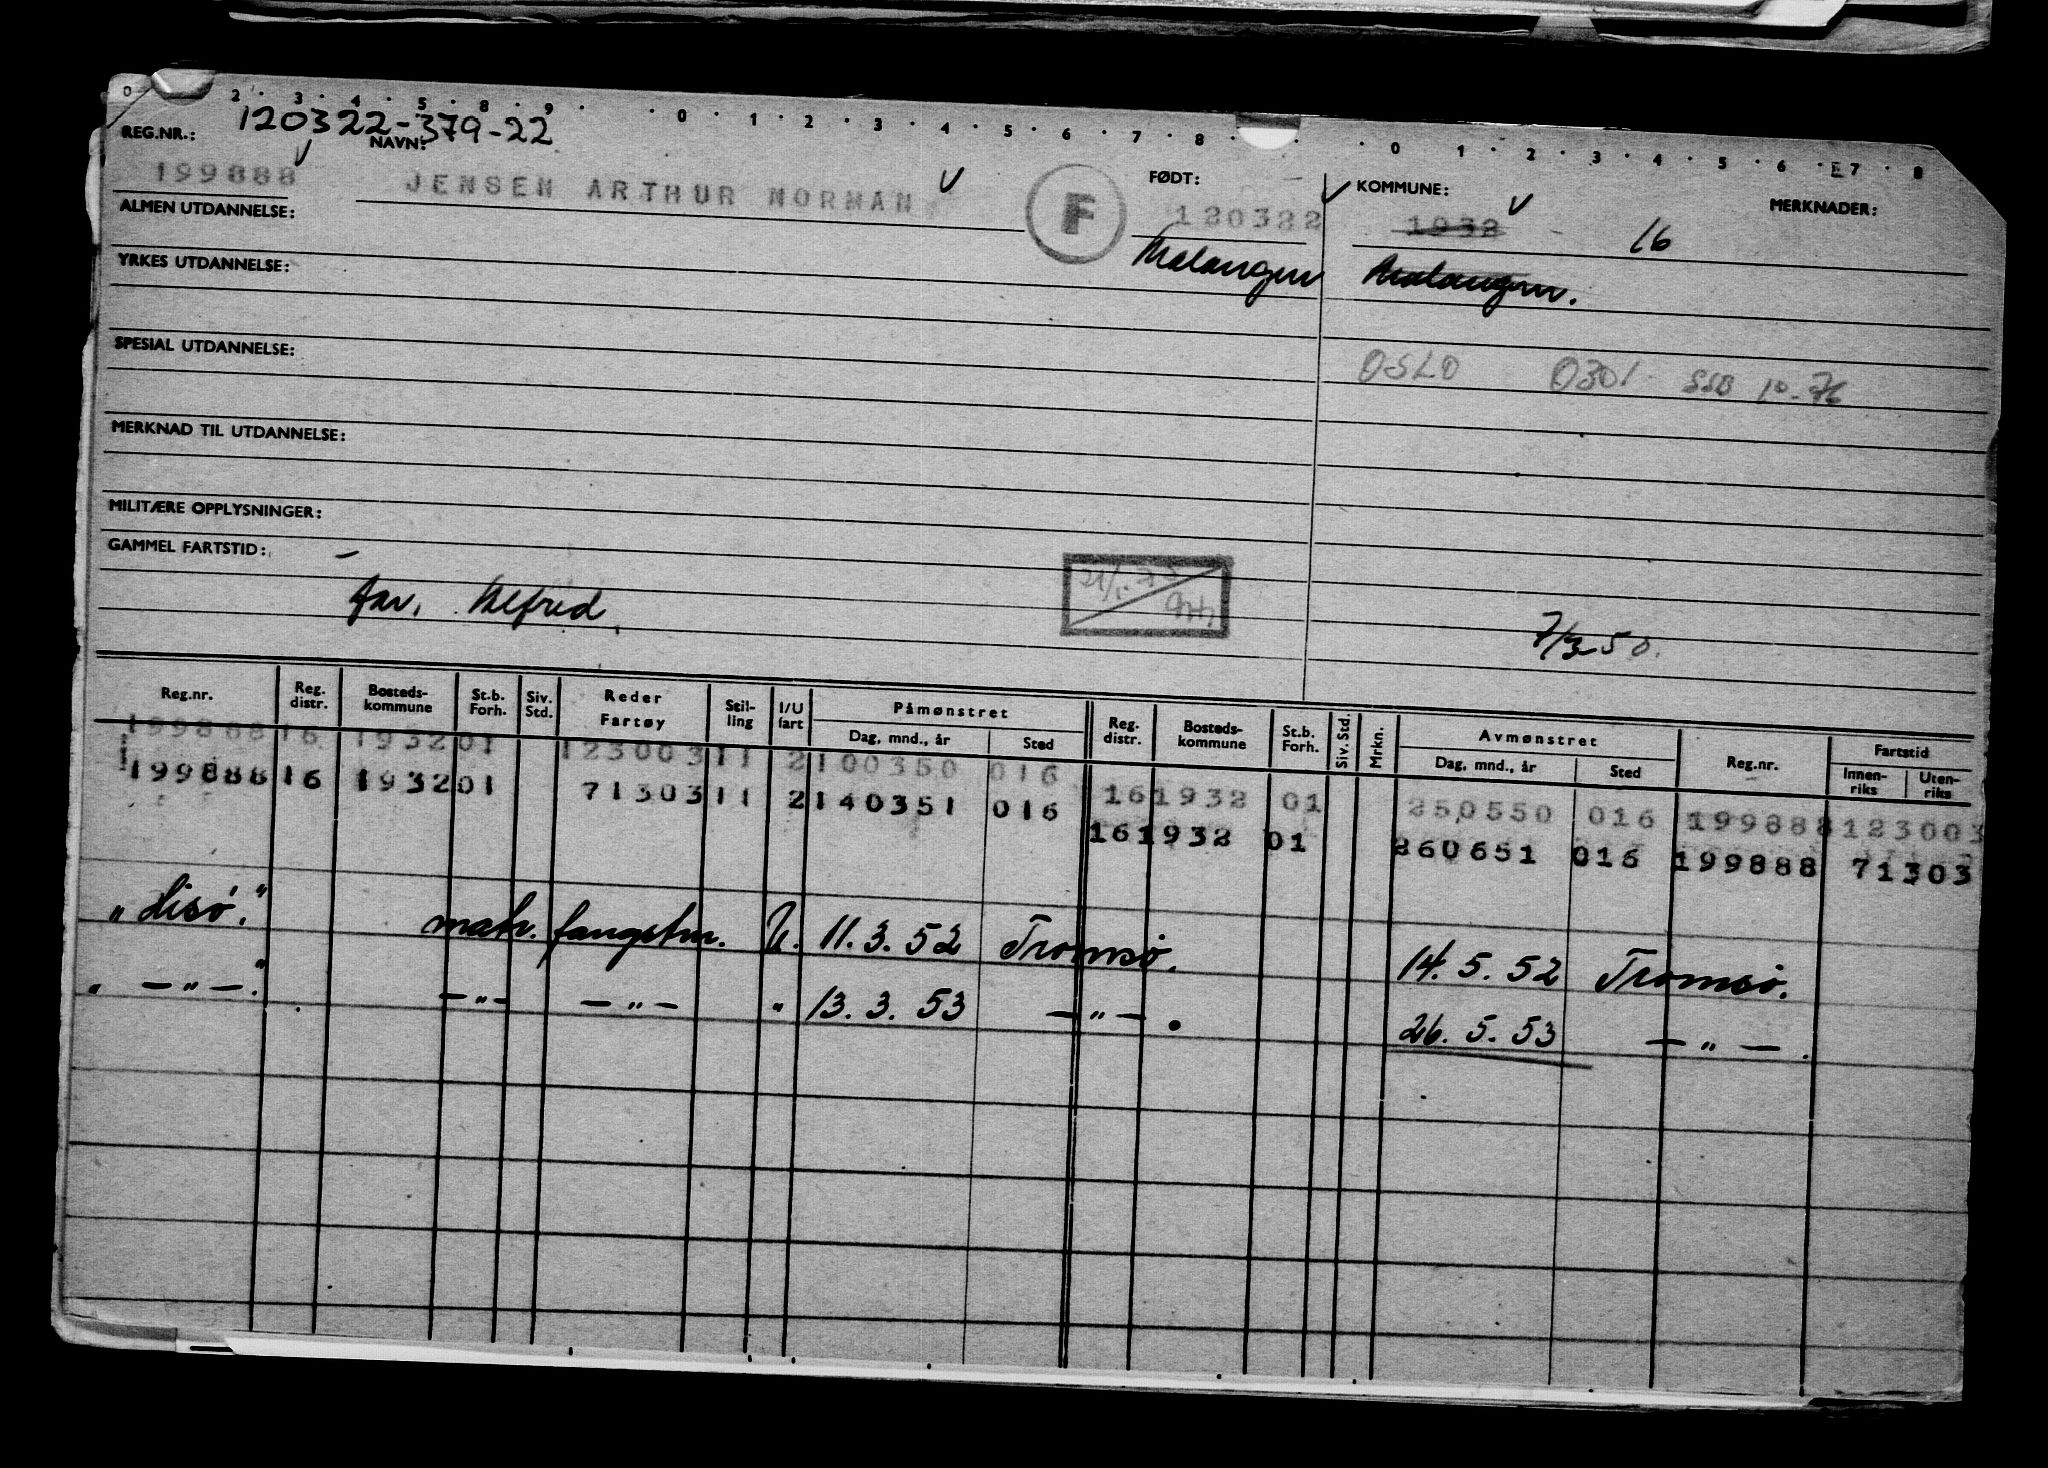 0 2 · 3 · 4 · 5 · 8 · 9 · · 0 · 1 · 2 · 3 · 4 · 5 · 6 · 7 · 8 · · · 0 · 1 · 2 · 3 · 4 · 5 · 6 · 7 · 8
REG.NR.: 120322-379-22 NAVN: FØDT: KOMMUNE: MERKNADER:
199888 JENSEN ARTHUR NORMAN F 120322 1932 16
ALMEN UTDANNELSE: Malangen Malangen.
YRKES UTDANNELSE:
SPESIAL UTDANNELSE: OSLO 0301 SSB 10-76
MERKNAD TIL UTDANNELSE:
MILITÆRE OPPLYSNINGER:
GAMMEL FARTSTID: —
far. Alfred. 7/3 50.
Reg.nr. Reg. distr. Bosteds-kommune St.b. Forh. Siv. Std. Reder Fartøy Stil-ling I/U fart Påmønstret Dag, mnd., år Sted Reg. distr. Bosteds-kommune St.b. Forh. Siv. Std. Mrkn. Avmønstret Dag, mnd., år Sted Reg.nr. Fartstid Innen-riks Uten-riks
199888 16 1932 01 12300311 2 100350 016 16 1932 01 250550 016 199888 123003
199888 16 1932 01 7130311 2 140351 016 16 1932 01 260651 016 199888 71303
"Lisø." matr. fangstm. U. 11. 3. 52 Tromsø. 14. 5. 52 Tromsø.
" — " — ." — " — — " — " 13. 3. 53 — " — . 26. 5. 53 — " — .